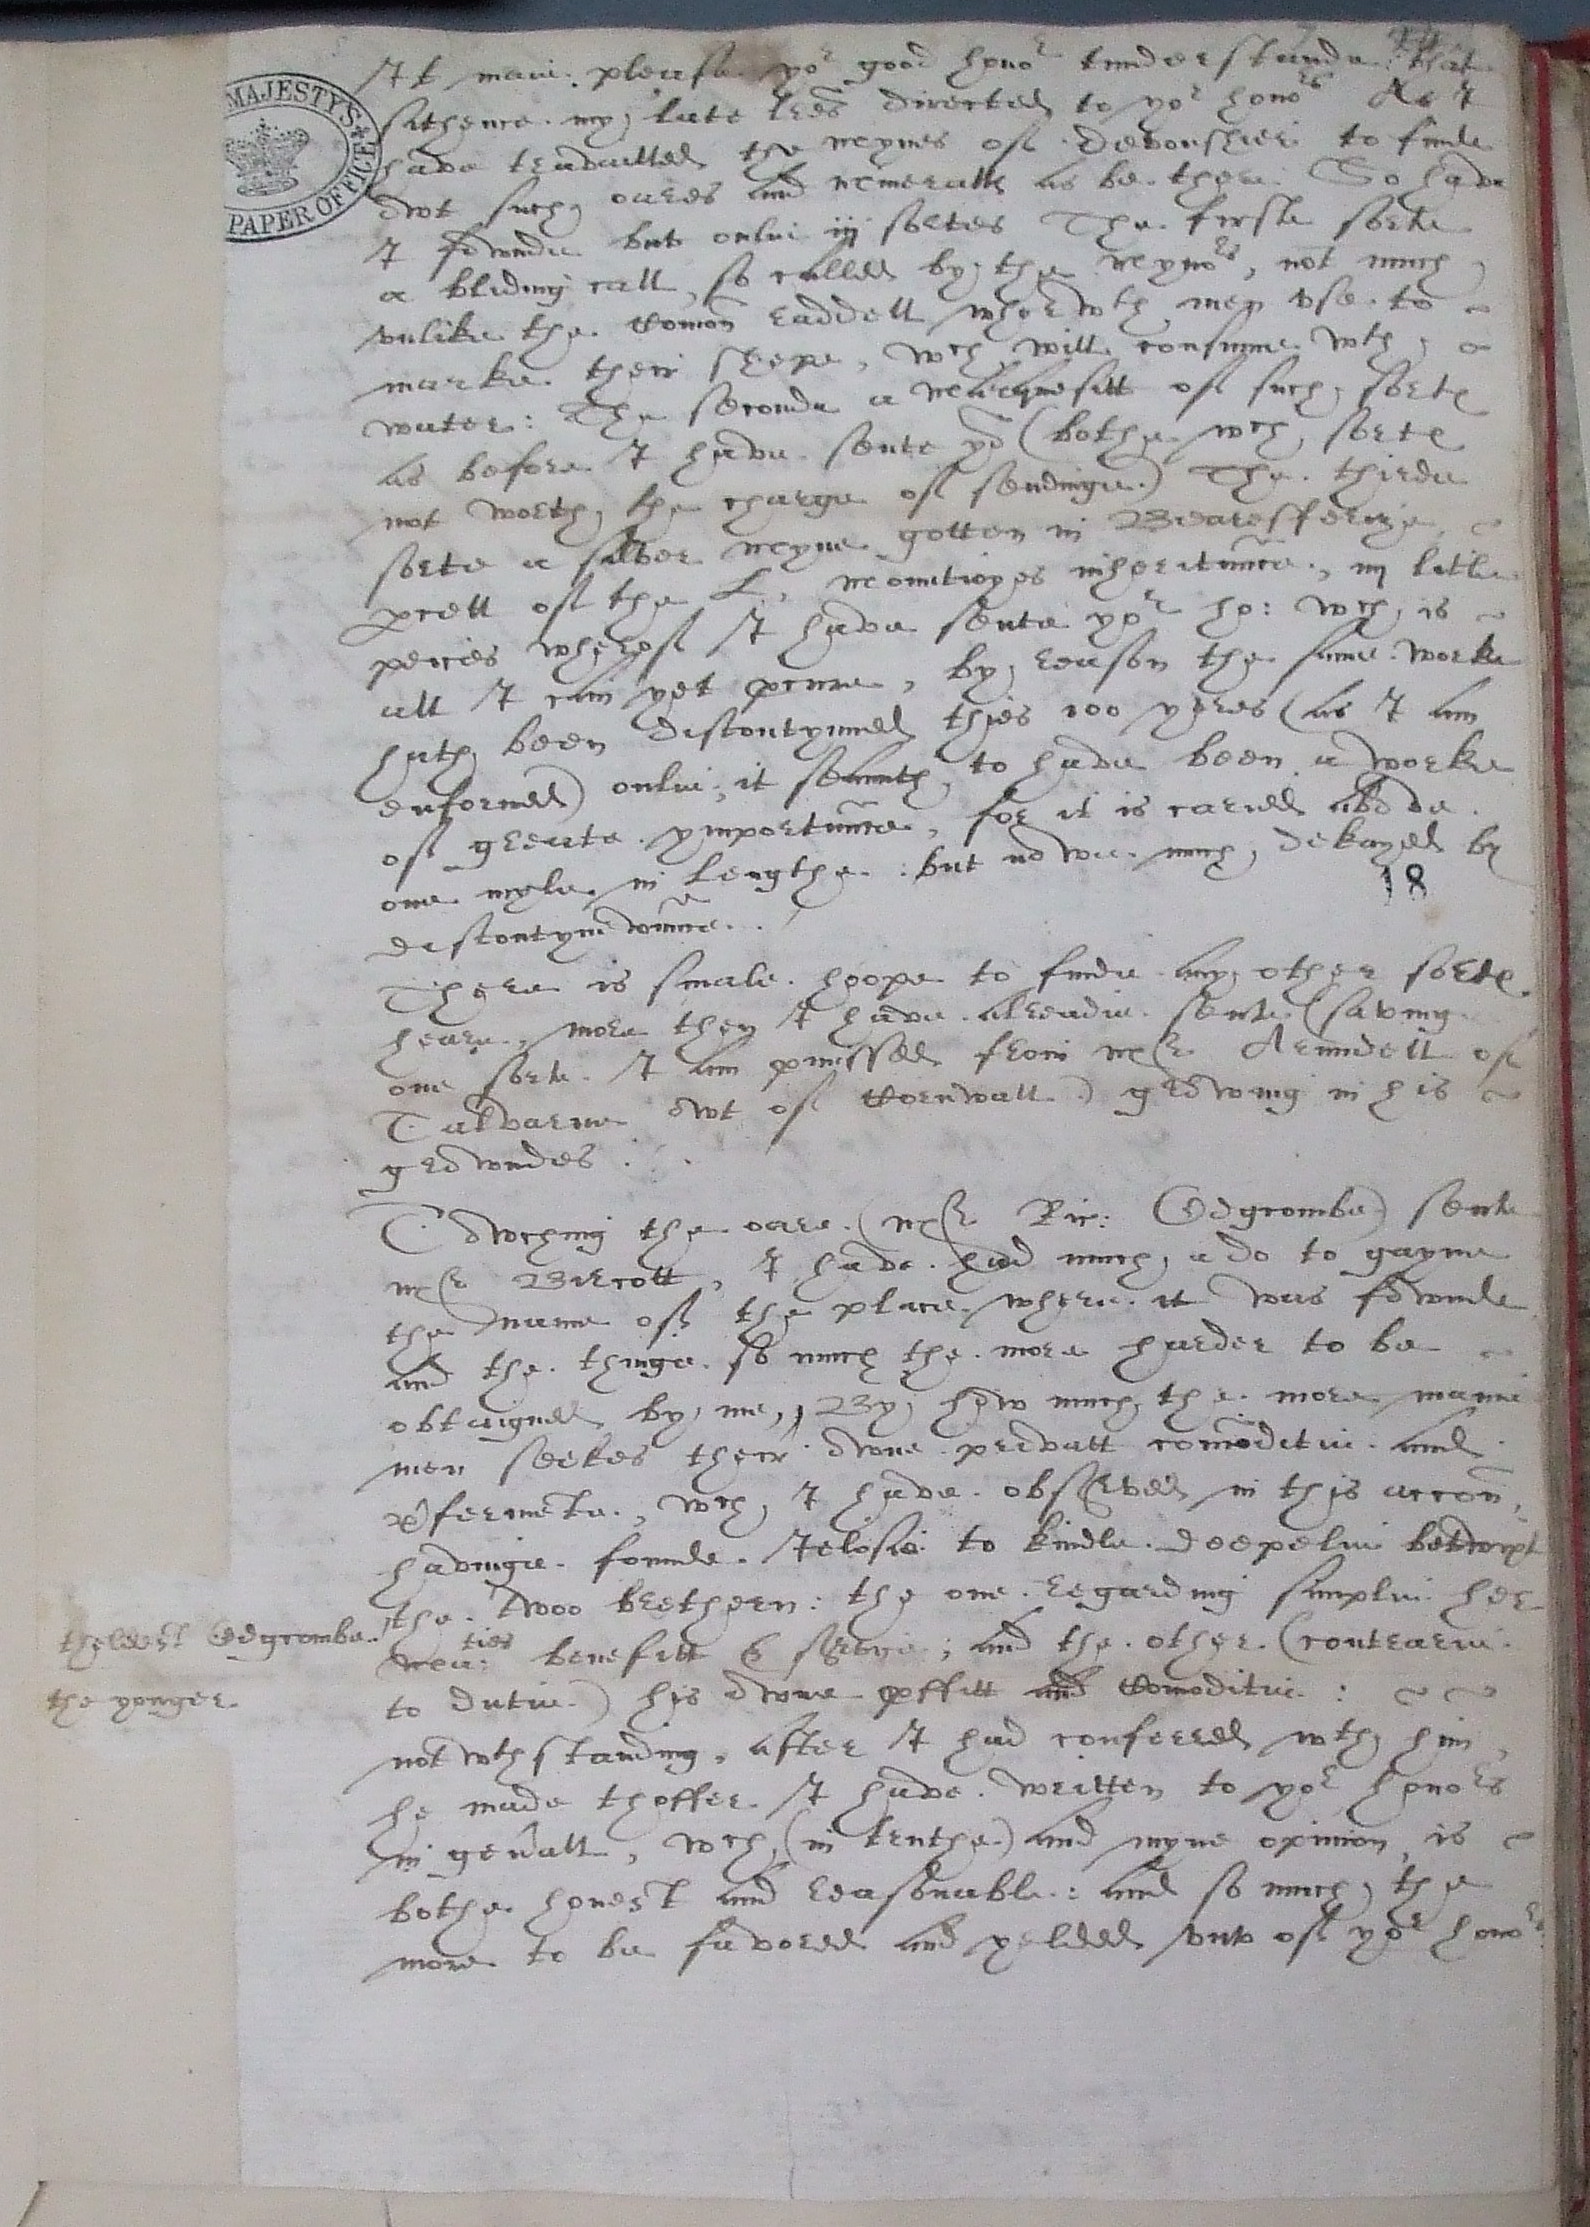 It maie please yor good honor tunderstande that
sithence my late lres directed to yor honors As I
have travailled the Mynes of Devonsheir to finde
MAJESTY'S
PAPER OFFICE
owt such oares and Mineralls as be there So have
I fownde but onlie iij sortes The firste sorte
a bliding call, so called by the Mynors, not much
unlike the Comon raddell wherwth men use to
marke their shepe, wch will consume wth
water: The seconde a Markesitt of such sorte
as before I have sente yo (bothe wch sorte
not worth the charge of sendinge) The thirde
sorte a silver Myne gotten in Beareferrye
pcell of the L. Mountioyes inheritance, iij litle
peices wherof I have sente yor ho: wch is
all I can yet pcure, by reason the same worke
hath been discontynued thies 100 yeres (as I am
enformed) onlie it semeth to have been a worke
of greate ymportance, for it is caried above
one myle in lengthe: but nowe much dekayed by
discontynewance.
18
There is smale hoope to finde any other sorte
heare, more then I have alreadie sente (saving
one sorte I am pmissed from Mr Arundell of
Talvarne owt of Cornwall) growing in his
growndes.
Towching the oare (Mr Ric: Edgcombe) sente
Mr Burcott, I have had much ado to gayne
the name of the place where it was fownde
and the thinge so much the more harder to be
obtaigned by me, By how much the more manie
men seekes their owne privatt comoditie and
pfermente, wch I have observed in this accon,
havinge founde Ielosie to kindle deepelie betwixt
the twoo brethern: the one regarding simplie her
theldest Edgcombe.
Maties benefitt & service; and the other (contrarie
the yonger
to dutie) his owne pffitt and Comoditie:
notwthstanding, after I had conferred wth him,
he made thoffer I have written to yor honors
in genall, wch (in truthe) and myne opinion is
bothe honest and reasonable: and so much the
more to be favored and yelded unto of yor honors